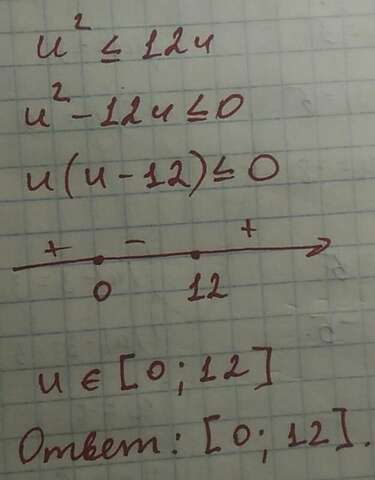 u² ≤ 12u
u² - 12u ≤ 0
u(u - 12) ≤ 0
+ - +
0 12
u ∈ [0; 12]
Ответ: [0; 12].